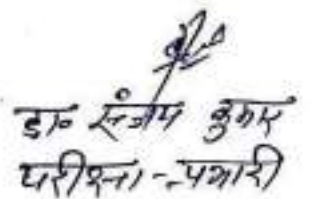 डा० संजय कुमार
परीक्षा-प्रभारी